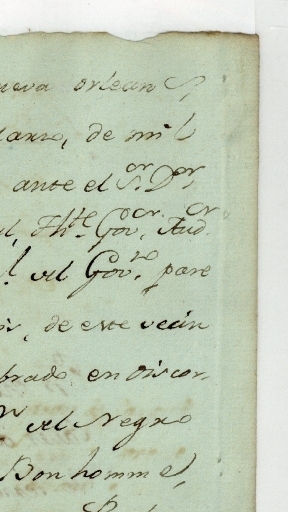 ueva orlean S,
arzo, de mil
ante el S.or D.or
l, Th.te Gov.or, Aud.or
l. del Gov.no pare
de este vecin
brado en discor,
del Negro
Bon homme,